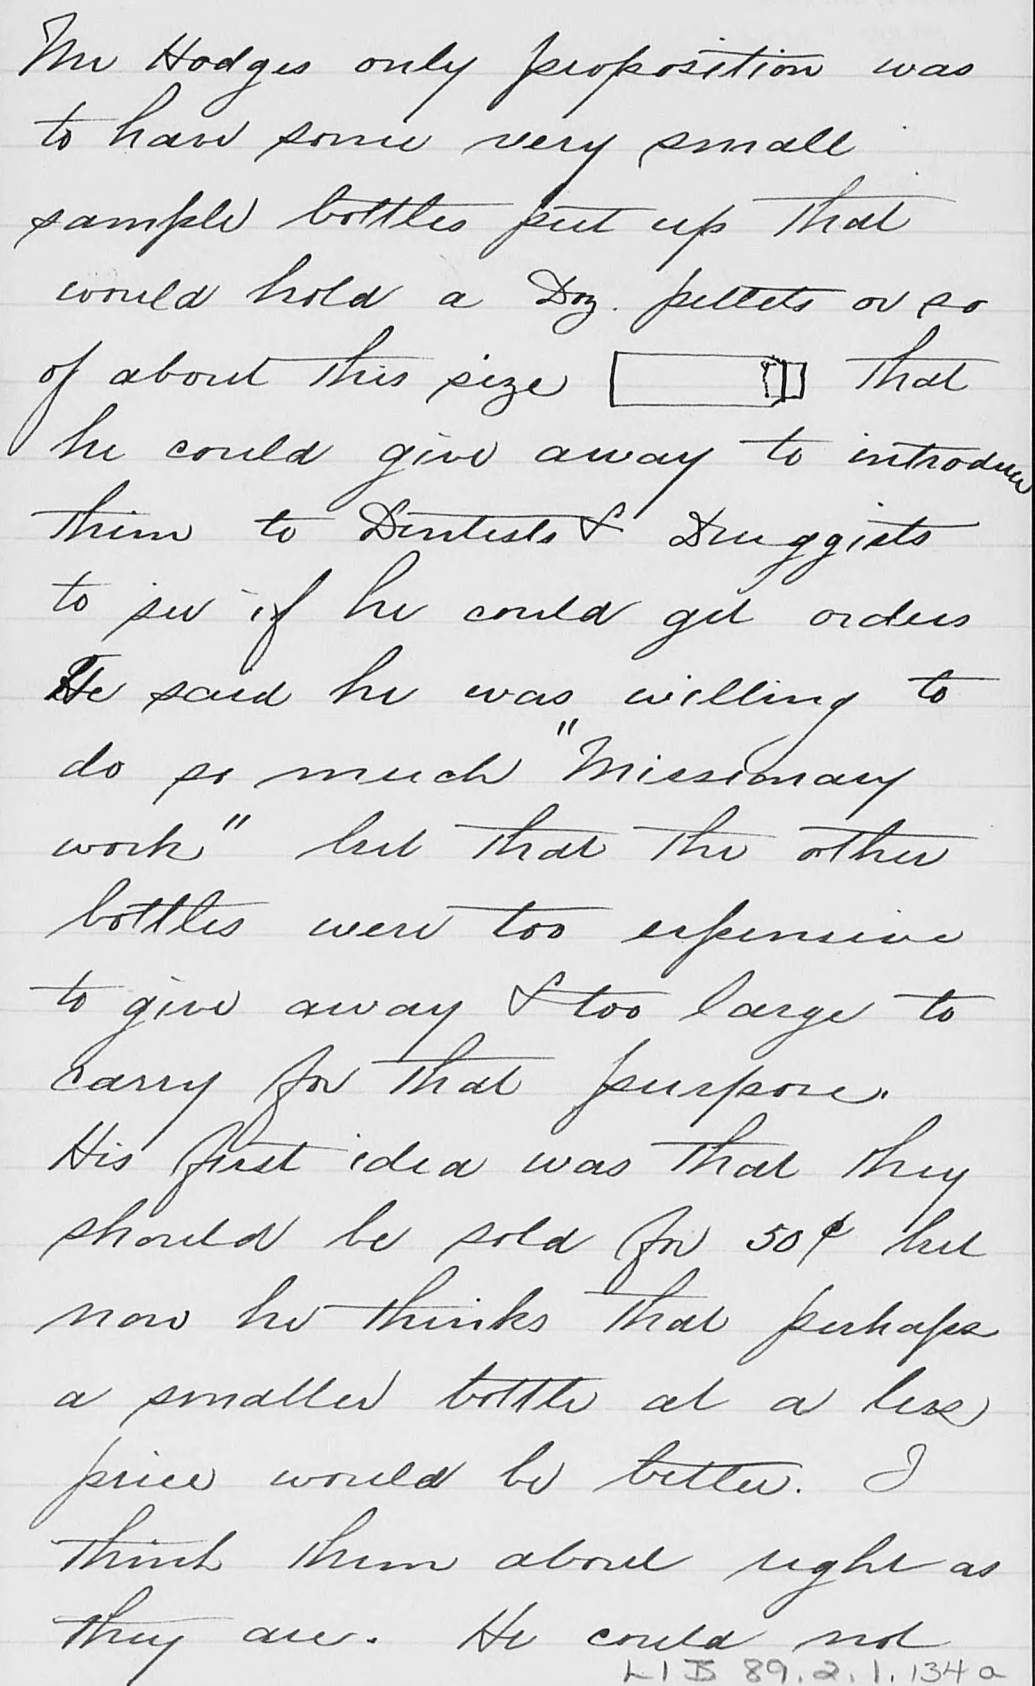 Mr Hodges only proposition was
to have some very small
sample bottles put up that
would hold a Doz. pellets or so
of about this size that
he could give away to introduce
them to Dentists & Druggists
to see if he could get orders
He said he was willing to
do so much "Missionary
work" but that the other
bottles were too expensive
to give away & too large to
carry for that purpose.
His first idea was that they
should be sold for 50¢ but
now he thinks that perhaps
a smaller bottle at a less
price would be better. I
think them about right as
they are. He could not
LIB 89.2.1.134a